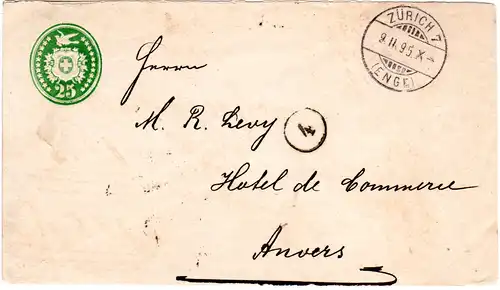 25
ZÜRICH 7
9.II.95.X-
(ENGE)
Herrn
M. R. Levy
4
Hotel de Commerce
Anvers